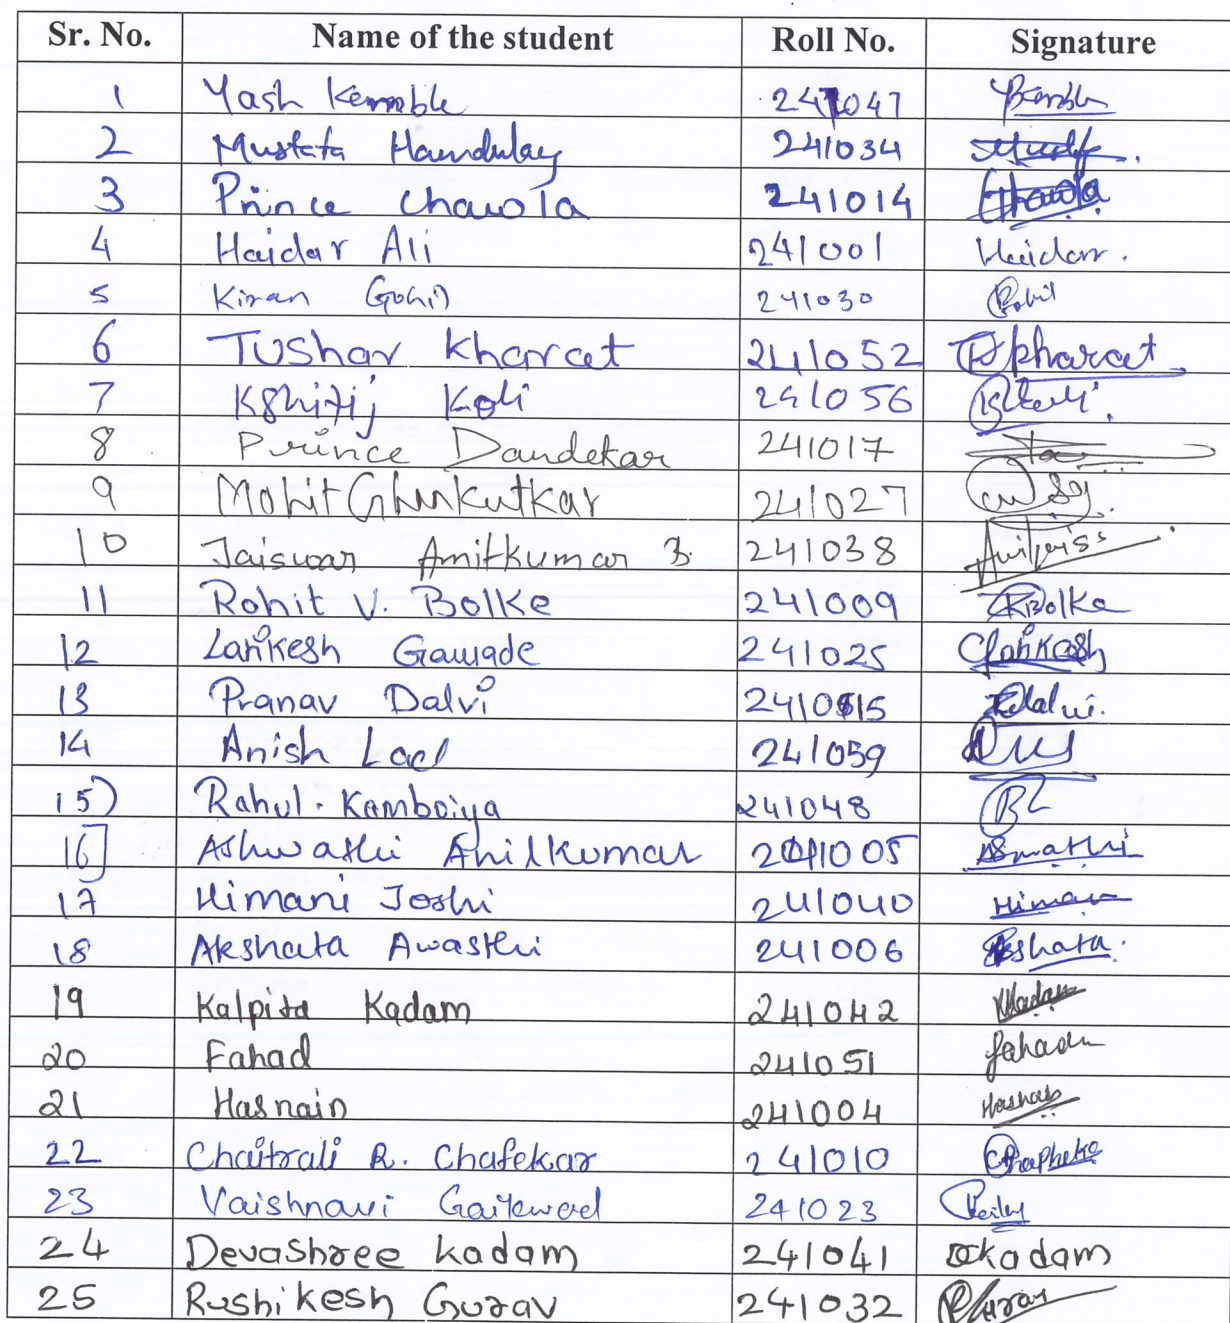 Sr. No. Name of the student Roll No. Signature
1 Yash Kemble 241047 YKemble
2 Mustafa Handulay 241034
3 Prince Chawla 241014 Chawla
4 Haidar Ali 241001 Haidar.
5 Kiran Gohil 241030 Gohil
6 Tushar Kharat 241052 Kharat
7 Kshitij Koli 241056
8 Prince Dandekar 241017
9 Mohit Ghunkutkar 241027
10 Jaiswar Amitkumar B. 241038
11 Rohit V. Bolke 241009 RBolke
12 Lankesh Gawade 241025 Lankesh
13 Pranav Dalvi 241015 Dalvi.
14 Anish Lad 241059
15) Rahul. Kamboiya 241048
16] Ashwathi Anilkumar 241005 Aswathi
17 Himani Joshi 241040 Himani
18 Akshata Awasthi 241006 Akshata.
19 Kalpita Kadam 241042 Kadam
20 Fahad 241051 fahad
21 Hasnain 241004
22 Chaitrali R. Chafekar 241010
23 Vaishnavi Gaikwad 241023
24 Devashree Kadam 241041 Dkadam
25 Rushikesh Gurav 241032